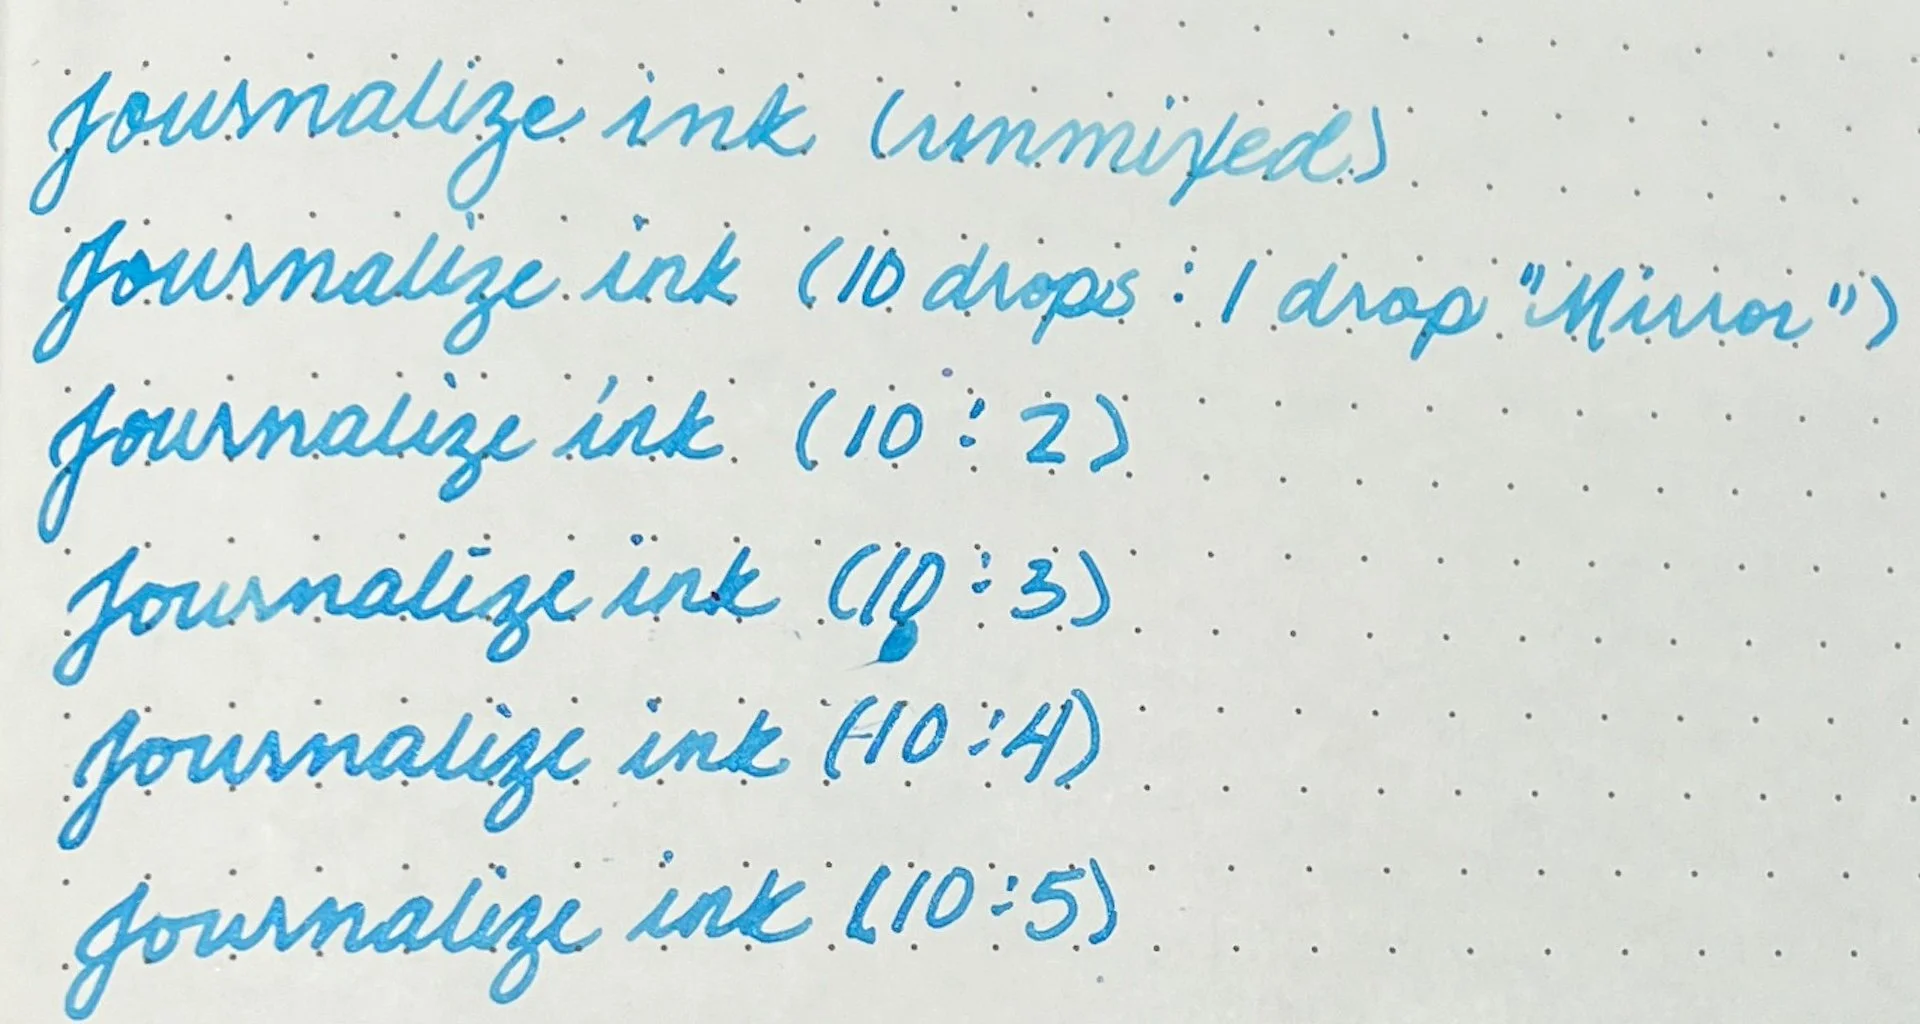 Journalize ink (unmixed)
Journalize ink (10 drops : 1 drop "Mirror")
Journalize ink (10 : 2)
Journalize ink (10 : 3)
Journalize ink (10 : 4)
Journalize ink (10 : 5)